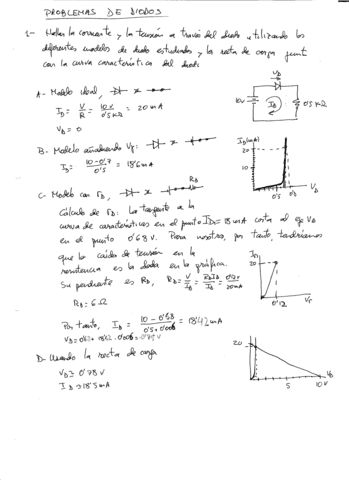 PROBLEMAS DE DIODOS
1- Hallar la corriente y la tensión a través del diodo utilizando los
diferentes modelos de diodo estudiados y la recta de carga junto
con la curva característica del diodo
A- Modelo ideal,
I_D = V/R = 10V/0'5KΩ = 20mA
V_D = 0
V_D
10V
I_D
0'5KΩ
B- Modelo añadiendo Vγ:
I_D = 10-0'7/0'5 = 18'6mA
I_D(mA)
20
10
0'5
V_D
C- Modelo con r_D,
R_D
Cálculo de r_D: La tangente a la
curva de características en el punto I_D = 18mA corta al eje V_D
en el punto 0'68V. Para nosotros, por tanto, tendríamos
que la caída de tensión en la
resistencia es la dada en la gráfica.
Su pendiente es R_D, R_D = V/I_D = /I_D = /20mA
R_D = 6Ω
I_D
20
0'12
Por tanto, I_D = 10-0'68/0'5+0'006 = 18'42mA
V_D =
D- Usando la recta de carga
V_D = 0'78V
I_D = 18'5mA
20
5
10V
V_D